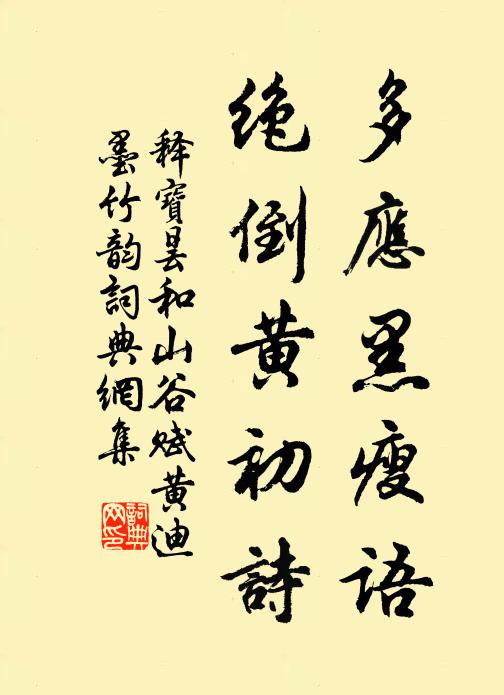 多應黑瘦語
絶倒黄初詩
释寶曇和山谷賦黄迪
墨竹韵詞典網集
詞典
网印